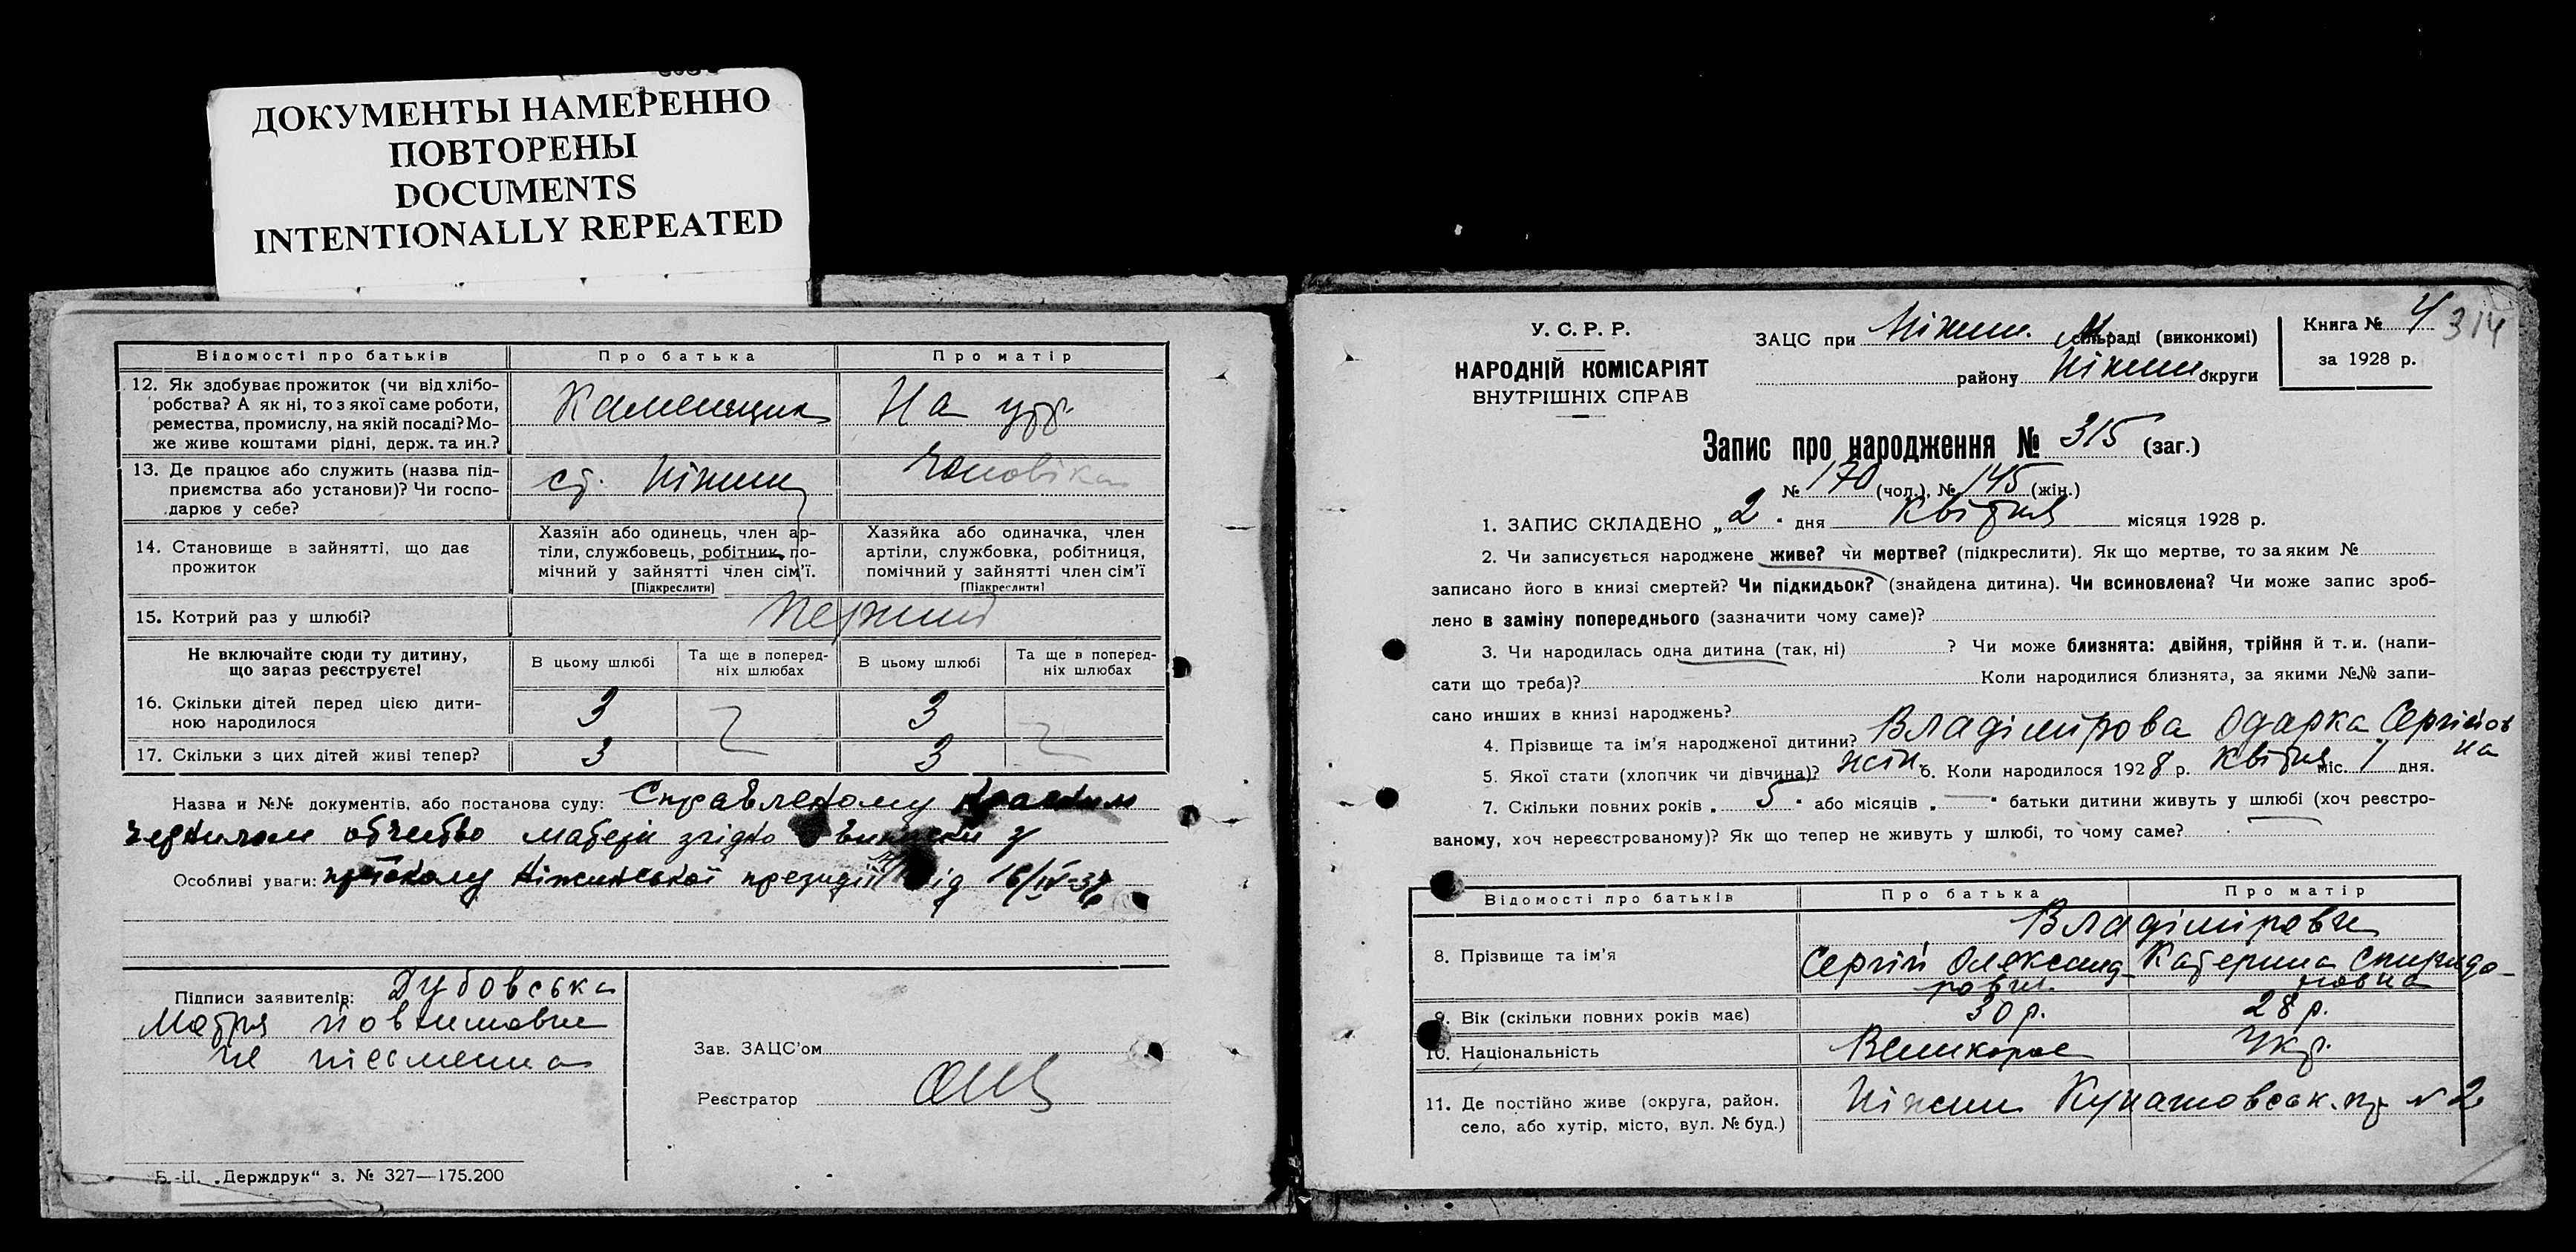 ДОКУМЕНТЫ НАМЕРЕННО
ПОВТОРЕНЫ
DOCUMENTS
INTENTIONALLY REPEATED
Відомості про батьків Про батька Про матір
12. Як здобуває прожиток (чи від хлібо-
робства? А як ні, то з якої саме роботи,
ремества, промислу, на якій посаді? Мо-
же живе коштами рідні, держ. та ин.?
Каменщик На утр.
13. Де працює або служить (назва під-
приємства або установи)? Чи госпо-
дарює у себе?
ст. Ніжин Чоловіка
14. Становище в зайнятті, що дає
прожиток
Хазяїн або одинець, член ар-
тіли, службовець, робітник, по-
мічний у зайнятті член сім'ї.
[Підкреслити]
Хазяйка або одиначка, член
артіли, службовка, робітниця,
помічний у зайнятті член сім'ї
[Підкреслити]
15. Котрий раз у шлюбі?
Перший
Не включайте сюди ту дитину,
що зараз реєструєте!
В цьому шлюбі Та ще в поперед-
ніх шлюбах В цьому шлюбі Та ще в поперед-
ніх шлюбах
16. Скільки дітей перед цією дити-
ною народилося 3 3
17. Скільки з цих дітей живі тепер? 3 3
Назва и №№ документів, або постанова суду: Справленому
чернилом отчество матері згідно виписки з
Особливі уваги: протоколу Ніжинської президії від 16/IV-36
Підписи заявителів: Дубовська
Мотря
не письменна
Зав. ЗАЦС'ом
Реєстратор
Б.-Ц. „Держдрук“ з. № 327—175.200
У. С. Р. Р.
НАРОДНІЙ КОМІСАРІЯТ
ВНУТРІШНІХ СПРАВ
ЗАЦС при Ніжин. М. сільраді (виконкомі)
району Ніжин округи
Книга № 4 314
за 1928 р.
Запис про народження № 315 (заг.)
№ 170 (чол.), № 145 (жін.)
1. ЗАПИС СКЛАДЕНО „2“ дня Квітня місяця 1928 р.
2. Чи записується народжене живе? чи мертве? (підкреслити). Як що мертве, то за яким №
записано його в книзі смертей? Чи підкидьок? (знайдена дитина). Чи всиновлена? Чи може запис зроб-
лено в заміну попереднього (зазначити чому саме)?
3. Чи народилась одна дитина (так, ні) ? Чи може близнята: двійня, трійня й т. и. (напи-
сати що треба)? Коли народилися близнята, за якими №№ запи-
сано инших в книзі народжень?
4. Прізвище та ім'я народженої дитини? Владімірова Одарка Сергійов
на
5. Якої стати (хлопчик чи дівчина)? жін. 6. Коли народилося 1928 р. Квітня міс. 1 дня.
7. Скільки повних років „5“ або місяців „—“ батьки дитини живуть у шлюбі (хоч реєстро-
ваному, хоч нереєстрованому)? Як що тепер не живуть у шлюбі, то чому саме?
Відомості про батьків Про батька Про матір
Владімірови
8. Прізвище та ім'я Сергій Олександ- Катерина Спиридо-
рович новна
9. Вік (скільки повних років має) 30 р. 28 р.
10. Національність Великорос Укр.
11. Де постійно живе (округа, район.
село, або хутір, місто, вул. № буд.)
Ніжин Кунашовськ. № 2